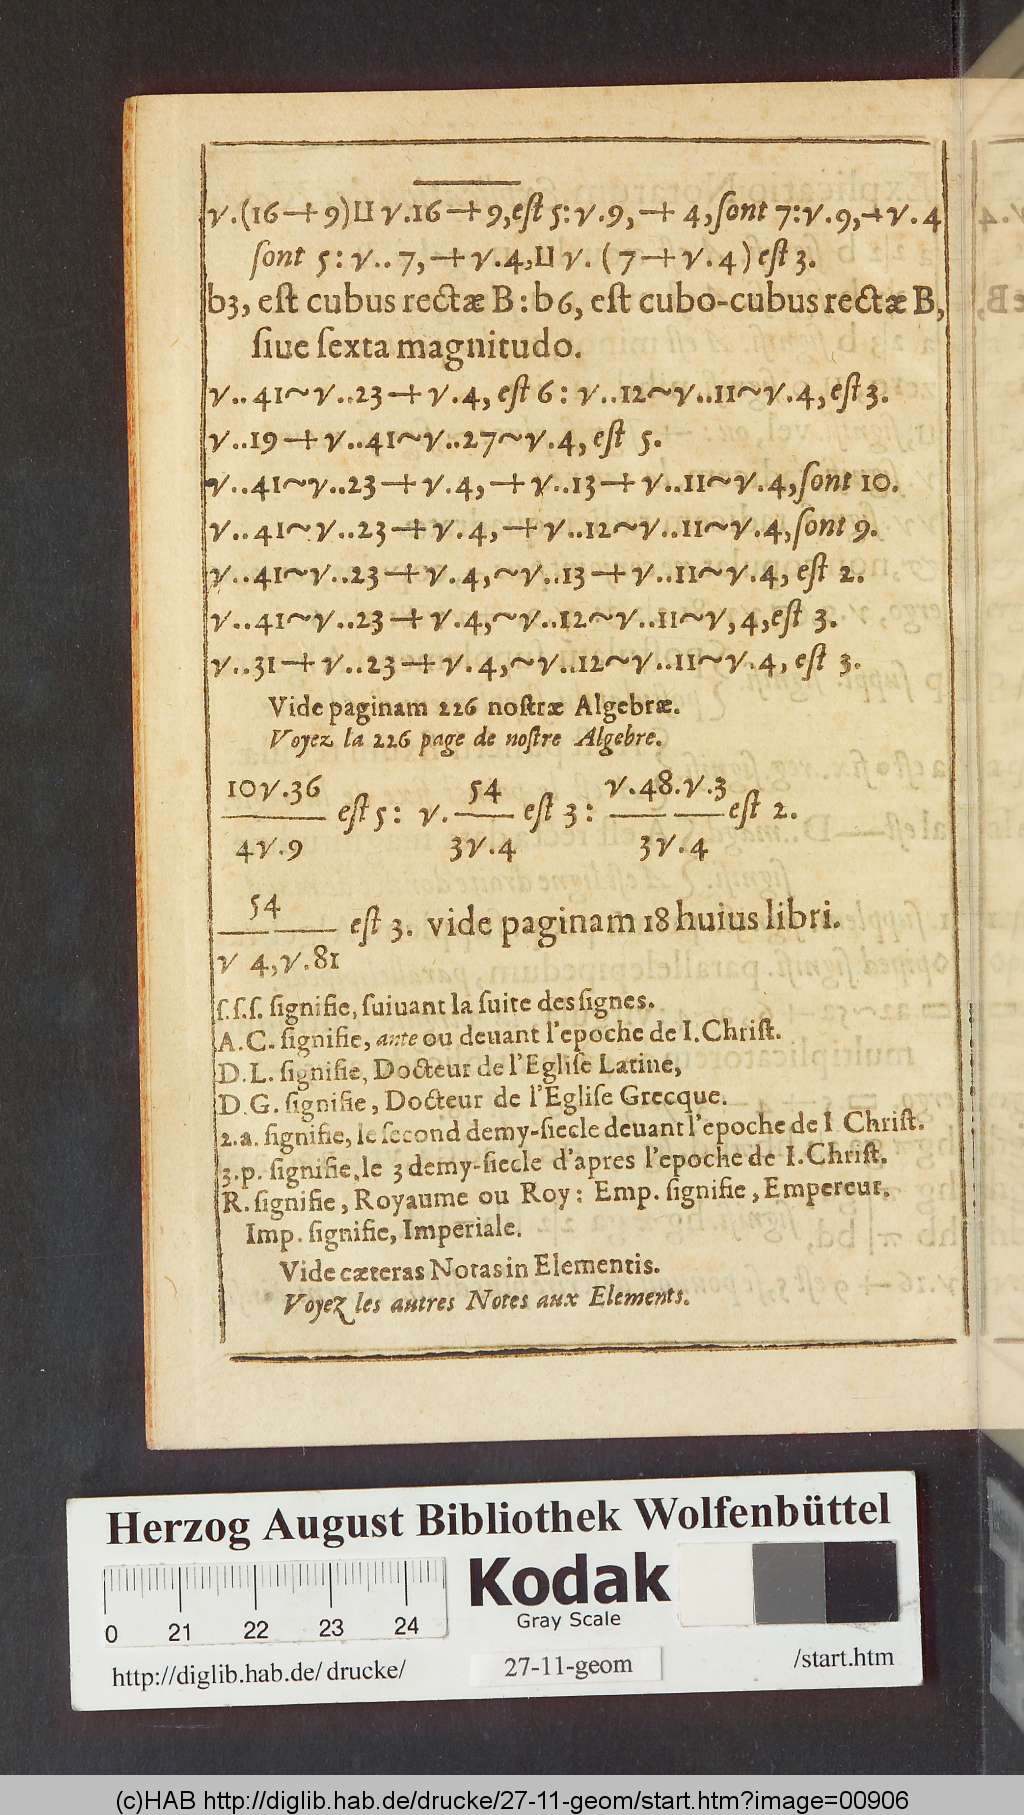 √.(16 + 9) ⊔ √.16 + 9, eſt 5: √.9, + 4, ſont 7: √.9, + √.4
ſont 5: √..7, + √.4, ⊔ √. (7 + √.4) eſt 3.
b3, eſt cubus rectæ B: b6, eſt cubo-cubus rectæ B,
ſiue ſexta magnitudo.
√..41~√..23 + √.4, eſt 6: √..12~√..11~√.4, eſt 3.
√..19 + √..41~√..27~√.4, eſt 5.
√..41~√..23 + √.4, + √..13 + √..11~√.4, ſont 10.
√..41~√..23 + √.4, + √..12~√..11~√.4, ſont 9.
√..41~√..23 + √.4, ~√..13 + √..11~√.4, eſt 2.
√..41~√..23 + √.4, ~√..12~√..11~√,4, eſt 3.
√..31 + √..23 + √.4, ~√..12~√..11~√.4, eſt 3.
Vide paginam 226 noſtræ Algebræ.
Voyez la 226 page de noſtre Algebre.
10√.36 54 √.48.√.3
eſt 5: √. eſt 3: eſt 2.
4√.9 3√.4 3√.4
54
eſt 3. vide paginam 18 huius libri.
√ 4,√.81
ſ.ſ.ſ. ſignifie, ſuiuant la ſuite des ſignes.
A.C. ſignifie, ante ou deuant l'epoche de I. Chriſt.
D.L. ſignifie, Docteur de l'Egliſe Latine,
D.G. ſignifie, Docteur de l'Egliſe Grecque.
2.a. ſignifie, le ſecond demy-ſiecle deuant l'epoche de I Chriſt.
3.p. ſignifie, le 3 demy-ſiecle d'apres l'epoche de I. Chriſt.
R. ſignifie, Royaume ou Roy: Emp. ſignifie, Empereur.
Imp. ſignifie, Imperiale.
Vide cæteras Notas in Elementis.
Voyez les autres Notes aux Elements.
Herzog August Bibliothek Wolfenbüttel
Kodak
Gray Scale
0 21 22 23 24
http://diglib.hab.de/ drucke/ 27-11-geom /start.htm
(c)HAB http://diglib.hab.de/drucke/27-11-geom/start.htm?image=00906